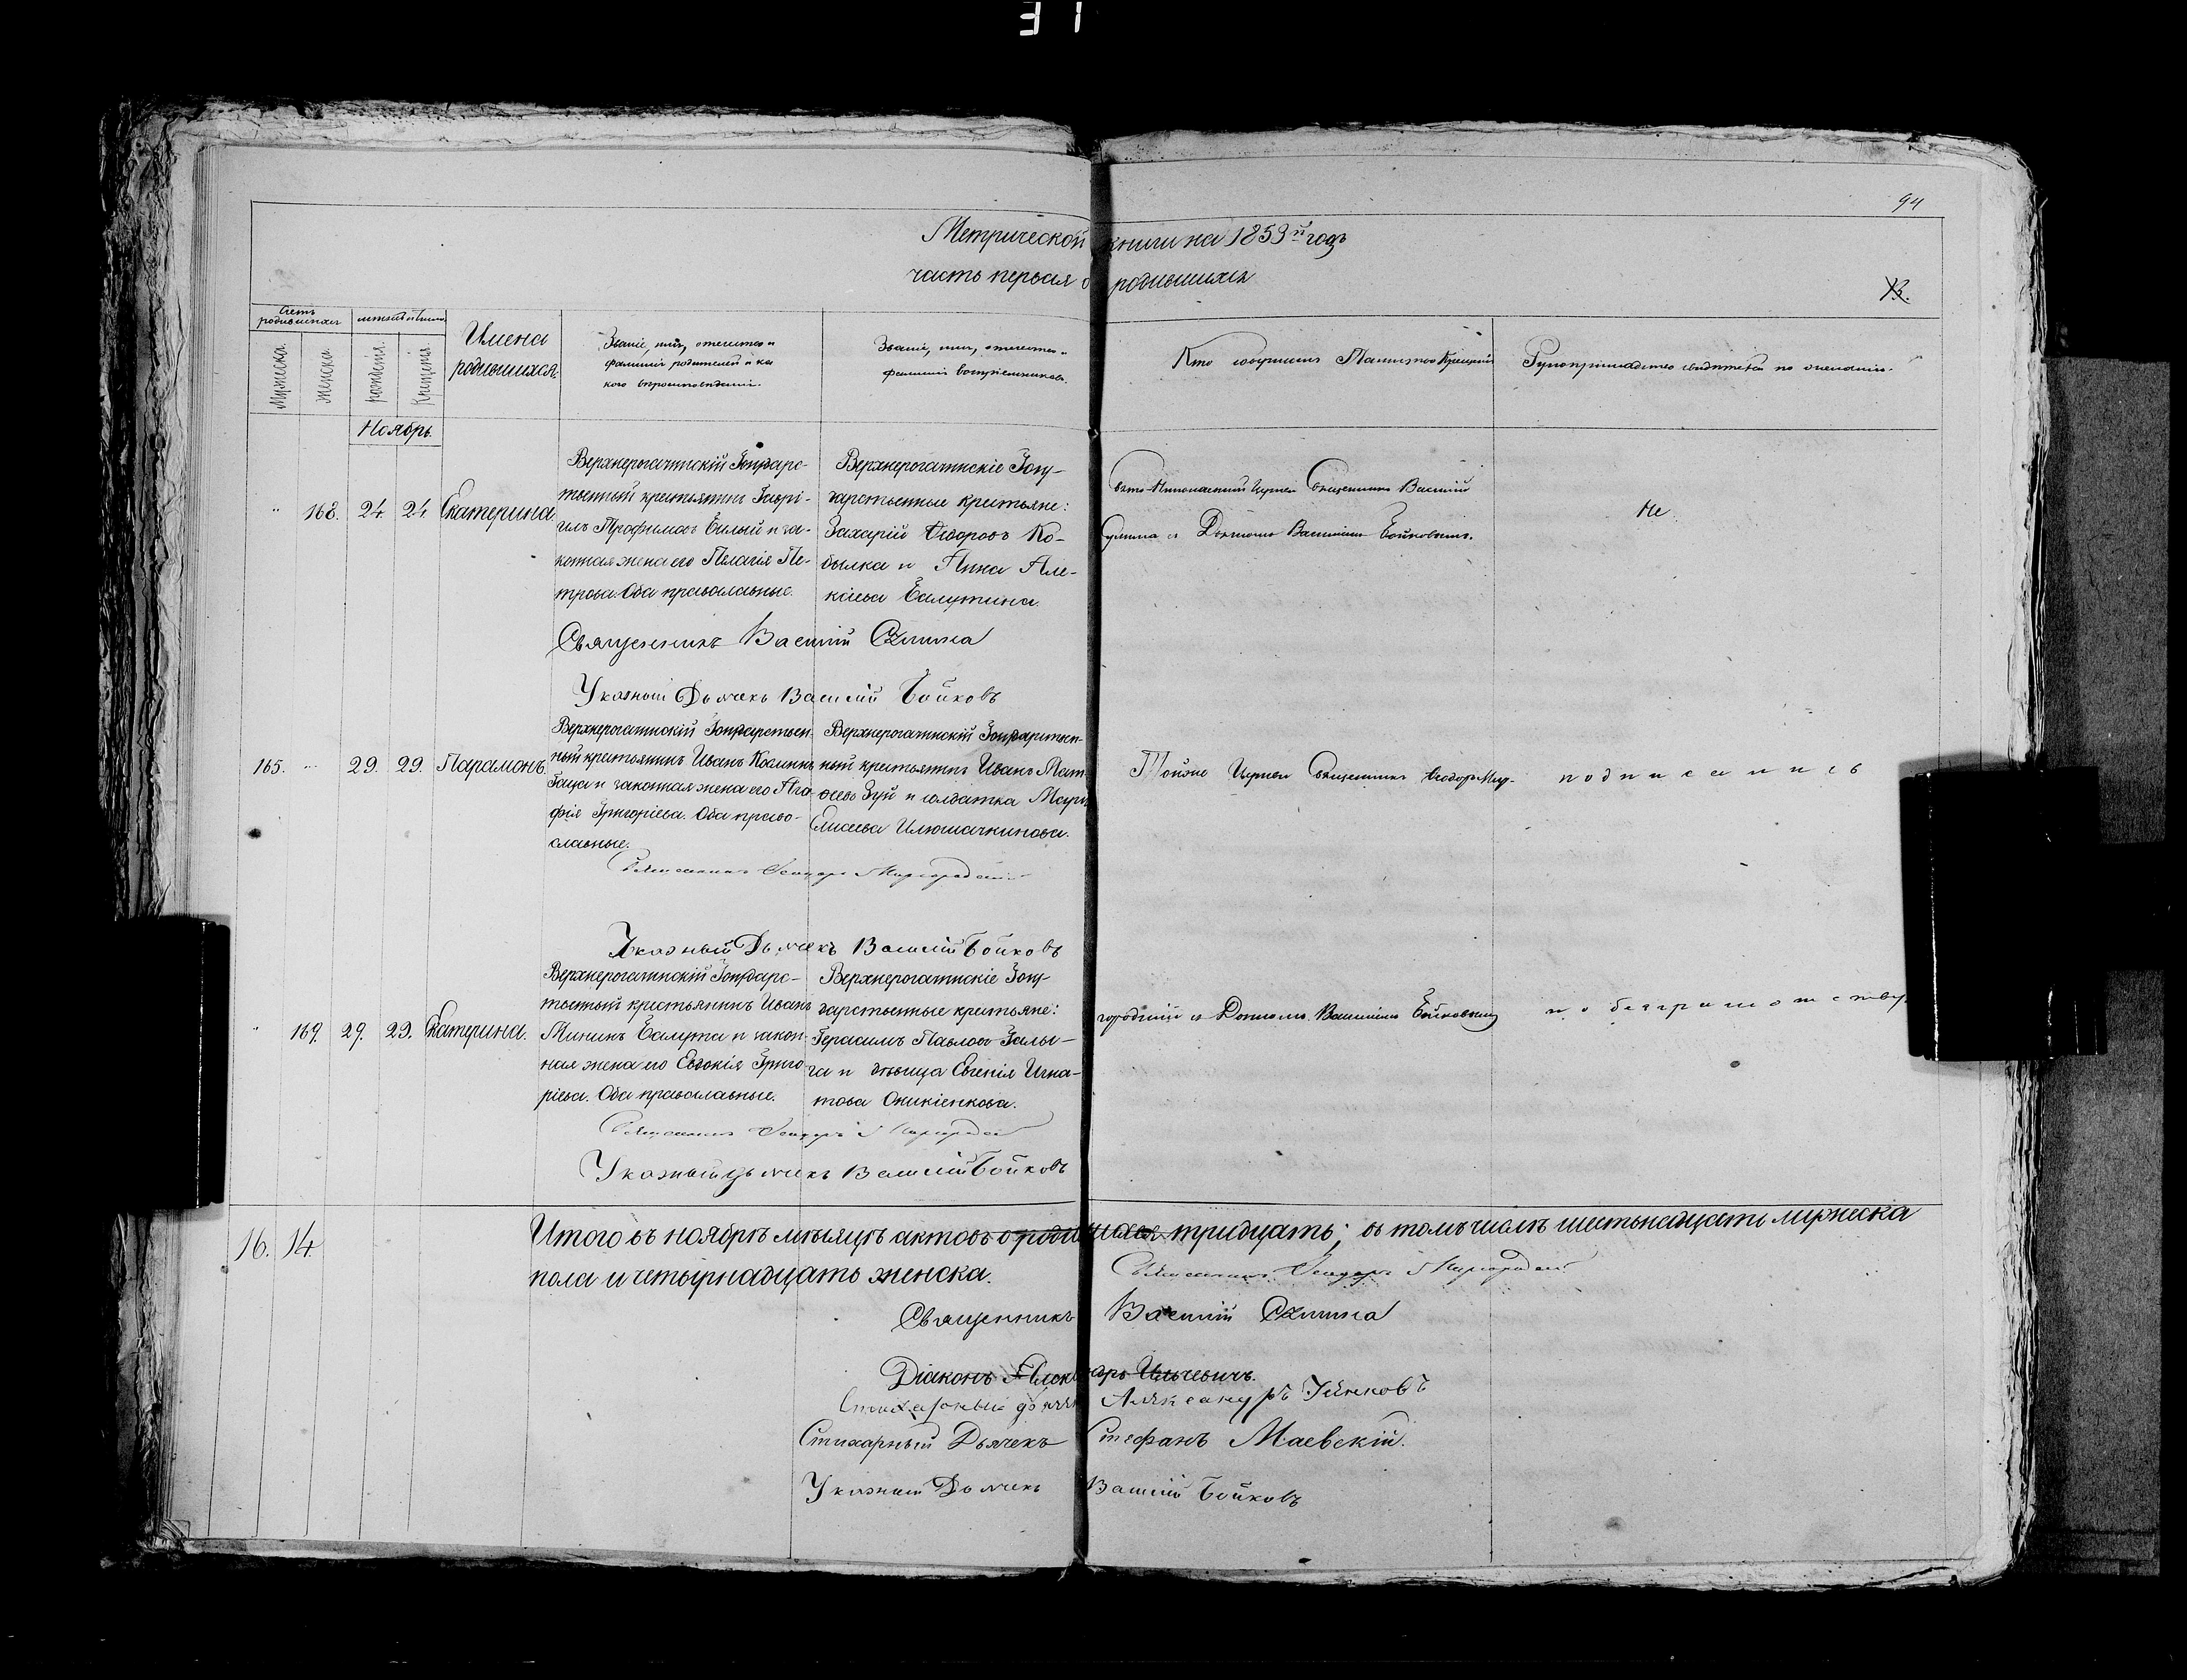 94
Метрической книги на 1859й годъ
часть первая о родившихся
Счетъ родившихся
Мужеска.
Женска.
рожденія.
Крещенія.
Имена
родившихся.
Званіе, имя, отчество и
фамилія родителей и ка
кого вѣроисповѣданія.
Званіе, имя, отчество и
фамилія воспріемниковъ.
Кто совершалъ Таинство Крещенія
Рукоприкладство свидѣтелей по желанію.
Ноябрь.
168. 24 24 Екатерина
Верхнерогачинскій Государс-
твенный крестьянинъ Гаврі-
илъ Трофимовъ Билый и за-
конная жена его Пелагія Пе-
трова. Оба православные.
Верхнерогачинскіе Госу-
дарственные крестьяне:
Захарій Ѳедоровъ Ко-
былка и Анна Але-
ксіева Балутина.
Свято-Николаевской Церкви Священникъ Василій
Сулима съ Дьячкомъ Василіемъ Бойковымъ.
Не
Священникъ Василій Сулима
Указный Дьячекъ Василій Бойковъ
165. 29. 29. Парамонъ.
Верхнерогачинскій Государствен-
ный крестьянинъ Иванъ
и законная жена его Ага-
фія Григоріева. Оба право-
славные.
Верхнерогачинскій Государствен-
ный крестьянинъ Иванъ Мат-
ѳеевъ Зуй и солдатка Марія
Елисеева Илюшачкинова.
Тойже Церкви Священникъ Ѳеодоръ Мир-
подписались
Священникъ Ѳеодоръ Миргородскій
Указный Дьячекъ Василій Бойковъ
169. 29. 29. Екатерина.
Верхнерогачинскій Государс-
твенный крестьянинъ Иванъ
Мининъ Балута и закон-
ная жена его Евдокія Григо-
ріева. Оба православные.
Верхнерогачинскіе Госу-
дарственные крестьяне:
Герасимъ Павловъ Галы-
га и дѣвица Евгенія Игна-
това Оникіенкова.
городскій съ Дьячкомъ Василіемъ Бойковымъ
по безграмотству.
Священникъ Ѳеодоръ Миргородскій
Указный Дьячекъ Василій Бойковъ
16. 14.
Итого въ ноябрѣ мѣсяцѣ актовъ о родившихся тридцать; въ томъ числѣ шестьнадцать мужеска
пола и четырнадцать женска.
Священникъ Ѳеодоръ Миргородскій
Священникъ Василій Сулима
Діаконъ Александръ Ильчевичъ.
Александръ
Стихарный Дьячекъ Стефанъ Маевскій.
Указный Дьячекъ Василій Бойковъ